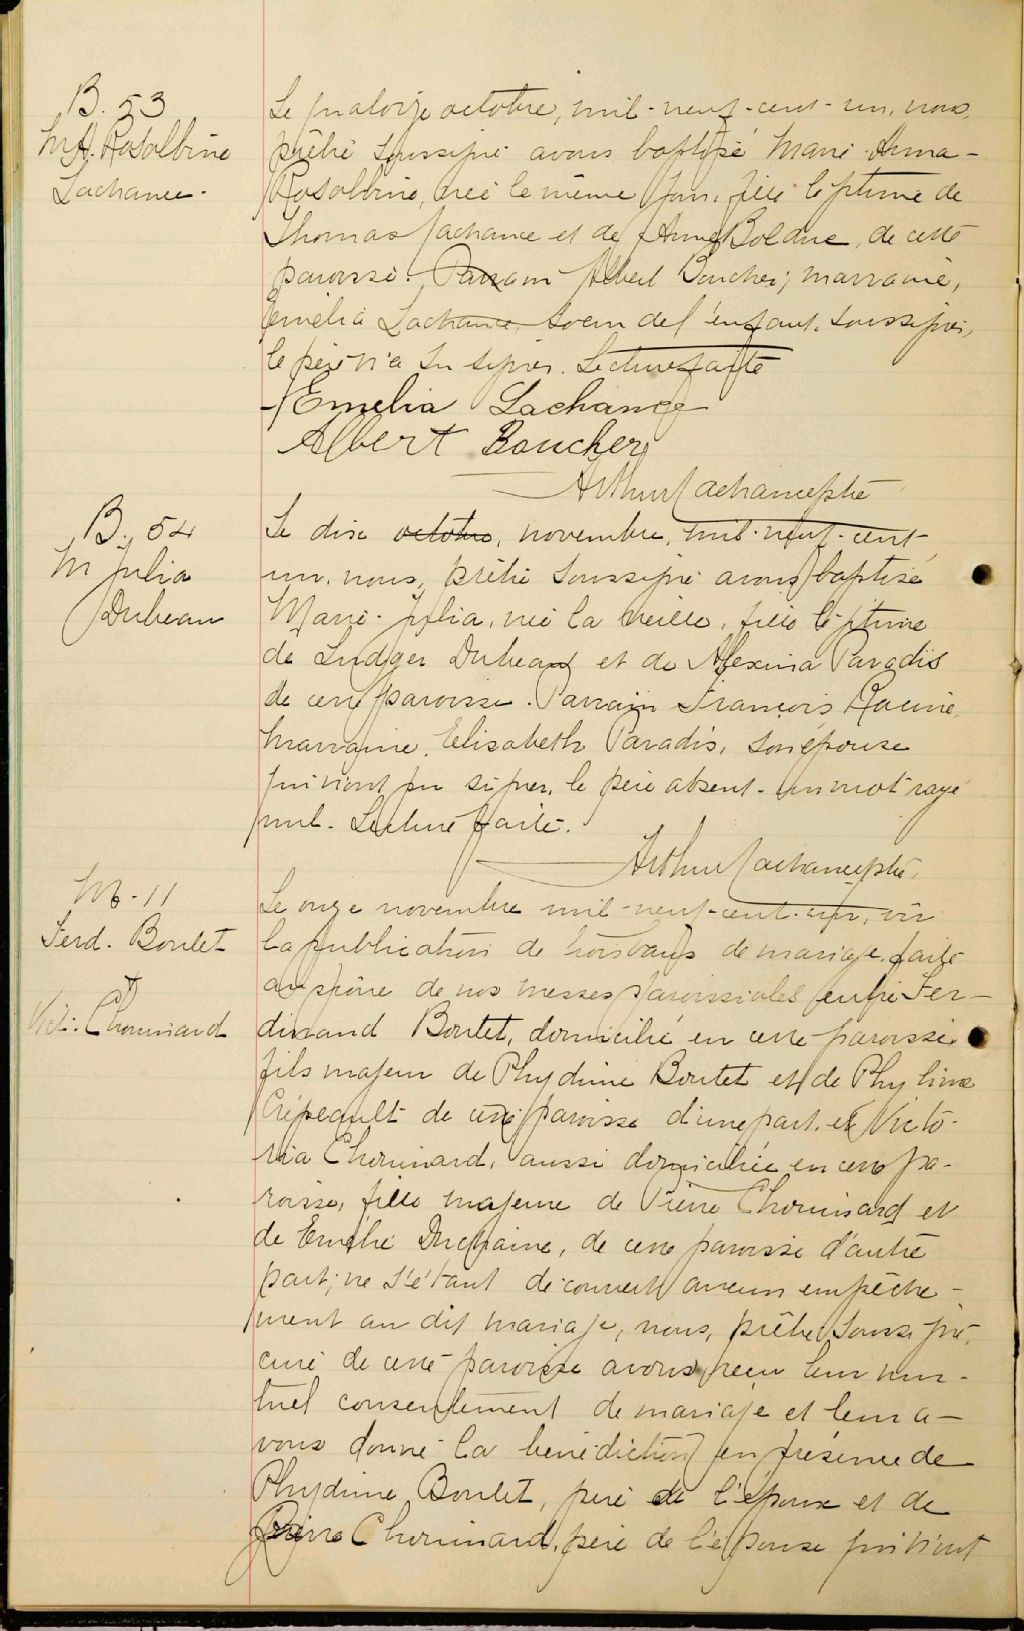 B. 53
M. A. Rosalbine
Lachance.
Le quatorze octobre, mil-neuf-cent-un, nous,
prêtre soussigné avons baptisé Marie-Anna-
Rosalbine, née le même jour, fille légitime de
Thomas Lachance et de Anna Bolduc, de cette
paroisse. Parrain Albert Boucher; marraine,
Emélia Lachance, soeur de l'enfant, soussignés,
le père n'a su signer. Lecture faite
Emelia Lachance
Albert Boucher
Arthur Lachance ptre
B. 54
M. Julia
Dubeau
Le dix octobre, novembre, mil-neuf-cent-
un, nous, prêtre soussigné avons baptisé
Marie-Julia, née la veille, fille légitime
de Ludger Dubeau et de Alexina Paradis
de cette paroisse. Parrain François Racine,
marraine, Elisabeth Paradis, son épouse
qui n'ont pu signer, le père absent. Un mot rayé
nul. Lecture faite.
Arthur Lachance ptre.
M-11
Ferd. Boutet
&
Vict. Chouinard
Le onze novembre mil-neuf-cent-un, vu
la publication de trois bans de mariage, faite
au prône de nos messes paroissiales entre Fer-
dinand Boutet, domicilié en cette paroisse
fils majeur de Phydime Boutet et de Phylime
Crépeault de cette paroisse d'une part, et Victo-
ria Chouinard, aussi domiciliée en cette pa-
roisse, fille majeure de Pierre Chouinard et
de Emélie Duchaine, de cette paroisse d'autre
part; ne s'étant découvert aucun empêche-
ment au dit mariage, nous, prêtre soussigné,
curé de cette paroisse avons reçu leur mu-
tuel consentement de mariage et leur a-
vons donné la bénédiction en présence de
Phydime Boutet, père de l'époux et de
Pierre Chouinard, père de l'épouse qui n'ont